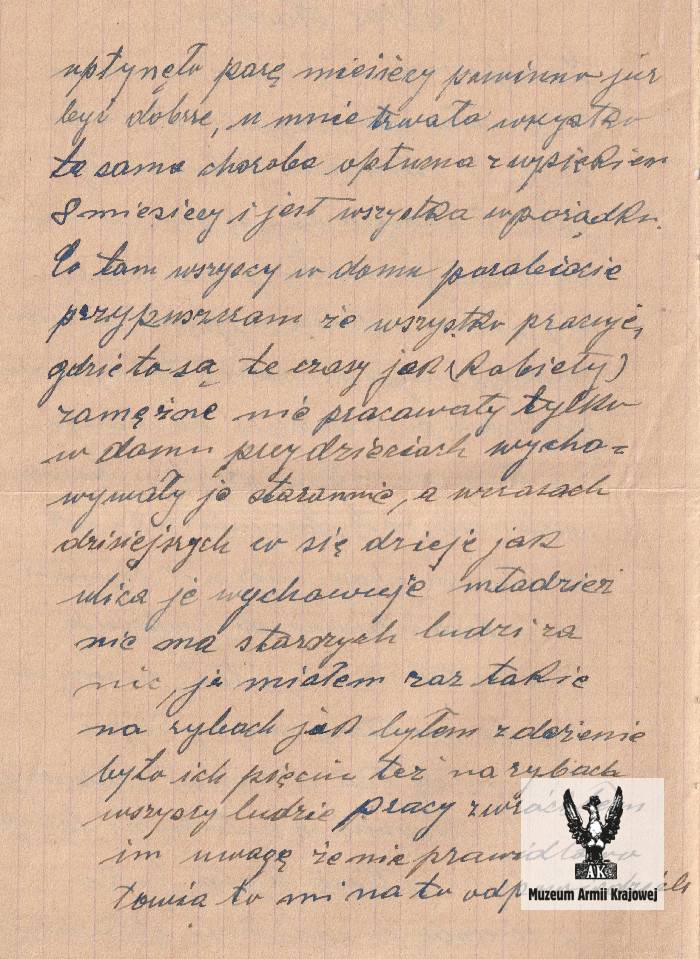 upłynęło parę miesięcy powinno już
być dobrze, u mnie trwało wszystko
ta sama choroba opłuzna z wysiękiem
8 miesięcy i jest wszystko wporządku.
Co tam wszyscy w domu porabiacie
przypuszczam że wszystko pracuje,
gdzie to są te czasy jak (kobiety)
zamężne nie pracowały tylko
w domu przydzieciach wycho=
wywały je starannie, a wczasach
dzisiejszych co się dzieje jak
ulica je wychowuje młodzież
nie ma starszych ludzi za
nic, ja miałem raz takie
na rybach jak byłem zdarzenie
było ich pięciu też na rybach
wszyscy ludzie pracy zwróciłem
im uwagę że nie prawidłowo
łowią to mi na to odpowiedzieli
AK
Muzeum Armii Krajowej